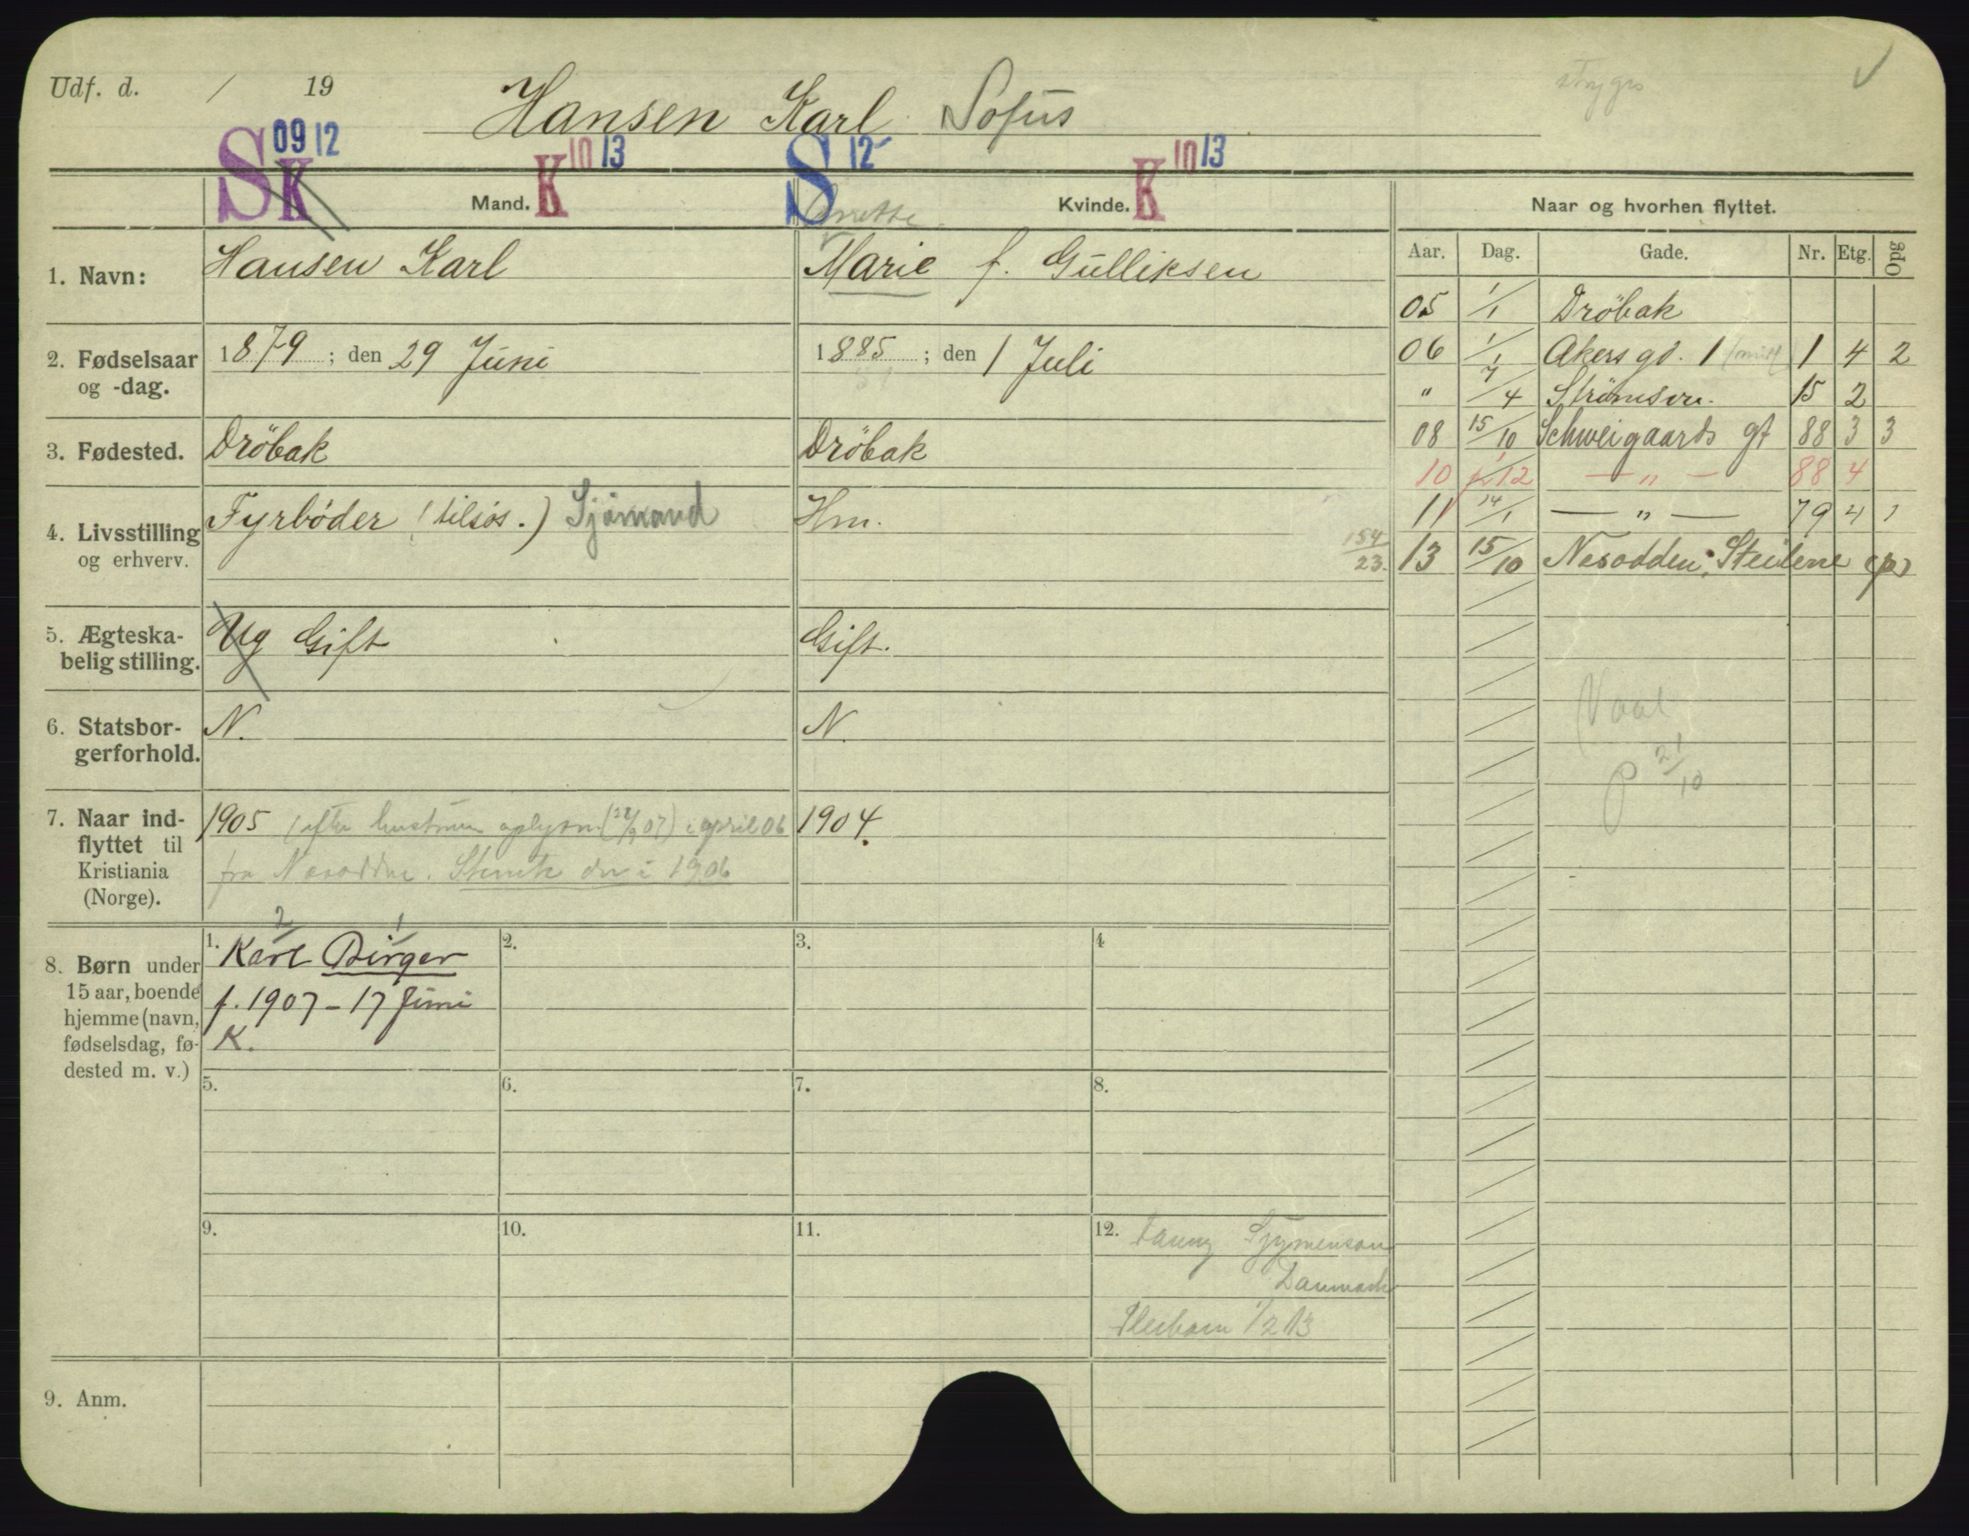 Udf. d. / 19
Hansen Karl Sofus
stryges
S K 09 12
Mand. K 10 13
S 12
Kvinde. K 10 13
Naar og hvorhen flyttet.
Aar. Dag. Gade. Nr. Etg. Opg
1. Navn: Hansen Karl
Marie f. Gulliksen
05 1/1 Drøbak
2. Fødselsaar og -dag. 1879; den 29 Juni
1885; den 1 Juli
06 1/1 Akersgd. 1 1 4 2
" 7/4 Strømsvn. 15 2
3. Fødested. Drøbak
Drøbak
08 15/10 Schweigaards gt 88 3 3
10 1/12 — " — 88 4
4. Livsstilling og erhverv. Fyrbøder (tilsøs.) Sjømand
Hm.
11 14/1 — " — 79 4 1
154/23. 13 15/10 Nesodden, Steilene (p)
5. Ægteska-
belig stilling. Ug Gift
Gift.
6. Statsbor-
gerforhold. N.
N.
P 21/10
7. Naar ind-
flyttet til
Kristiania
(Norge).
1905 (efter hustruens oplysn. ( /9 07) i april 06
fra Nesodden. i 1906
1904.
8. Børn under
15 aar, boende
hjemme (navn,
fødselsdag, fø-
dested m. v.)
1. Karl Birger
2 1
f. 1907 - 17 Juni
K.
2.
3.
4
5.
6.
7.
8.
9.
10.
11.
12. Fanny
Danmark
Pleibarn 1/2 13
9. Anm.